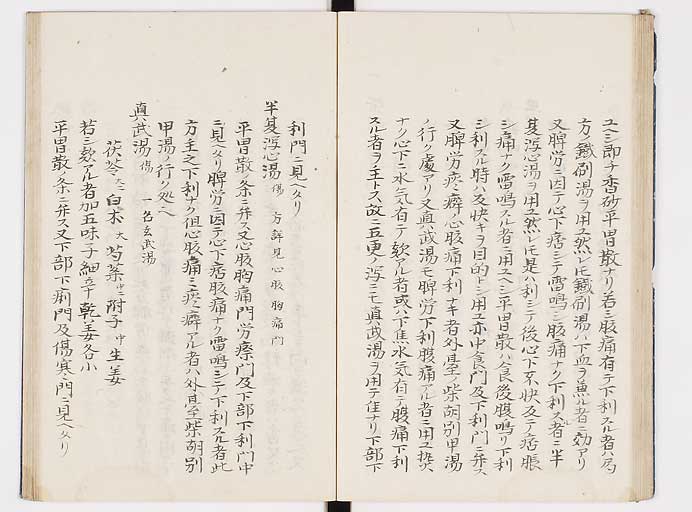 ユヘシ即チ香砂平胃散ナリ若シ腹痛有テ下利スル者ハ局
方ノ鐵刷湯ヲ用ユ然レ𪜈鐵刷湯ハ下血ヲ兼ル者ニ効アリ
又脾労ニ因テ心下痞シテ雷鳴シ腹痛ナク下利スル者ニ半
夏瀉心湯ヲ用ユ然レ𪜈是ハ利シテ後心下不快及テ痞脹
シ痛ナク雷鳴スル者ニ用ユヘシ平胃散ハ食後腹鳴リ下利
シ利スル時ハ反快キヲ目的トシ用ユ亦中食門及下利門ニ弁ス
又脾労疼癖心腹痛下利ナキ者外臺ノ柴胡別甲湯
ノ行ク處アリ又真武湯モ脾労下利腹痛アル者ニ用ユ
ナク心下ニ水気有テ欬アル者或ハ下焦水気有テ腹痛下利
スル者ヲ主トス故ニ五更ノ瀉ニモ真武湯ヲ用テ佳ナリ下部下
利門ニ見ヘタリ
半夏瀉心湯 傷 方詳見心腹胸痛門
平胃散ノ条ニ弁ス又心腹胸痛門労瘵門及下部下利門中
ニ見ヘタリ脾労ニ因テ心下痞腹痛ナク雷鳴シテ下利スル者此
方主之下利ナク但心腹痛ミ疼癖アル者ハ外臺柴胡別
甲湯ノ行ク処ヘ
真武湯 傷 一名玄武湯
茯苓 大 白朮 大 芍薬 中 附子 中 生姜
若シ欬アル者加五味子細辛乾姜各小
平胃散ノ条ニ弁ス又下部下痢門及傷寒門ニ見ヘタリ